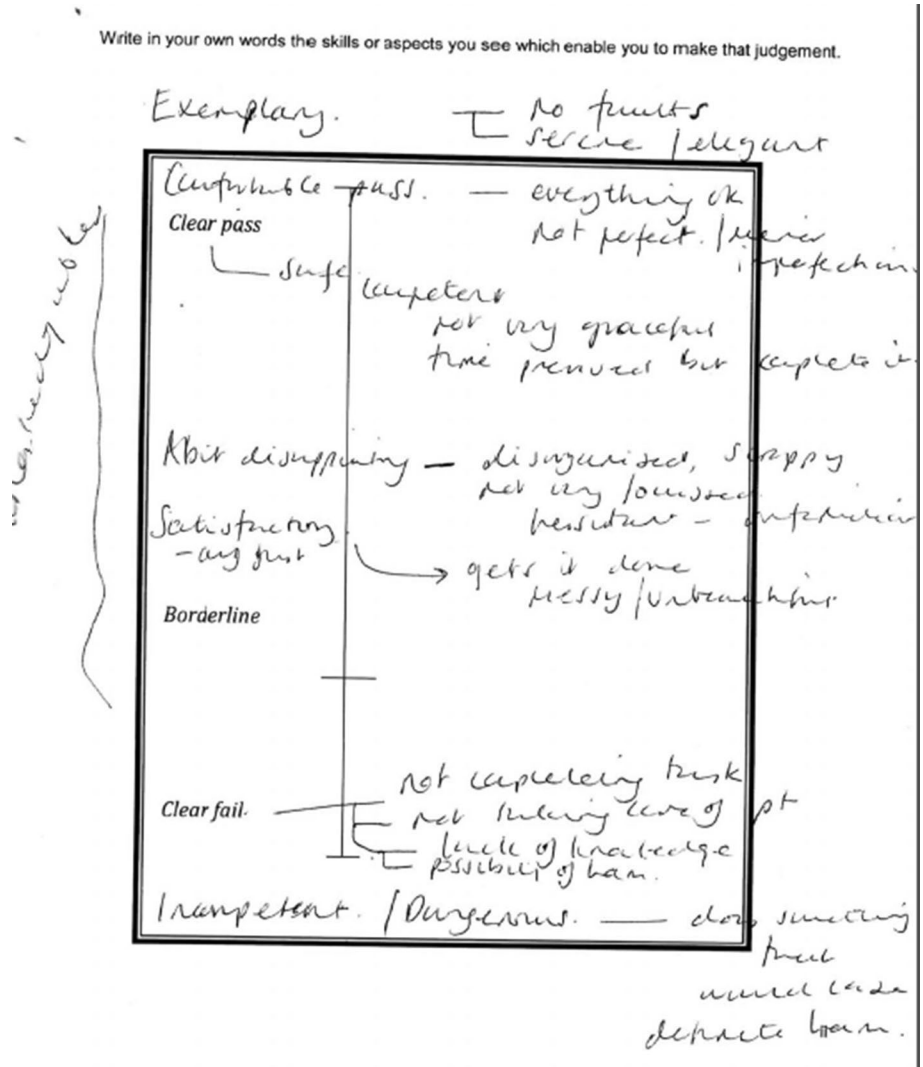 Write in your own words the skills or aspects you see which enable you to make that judgement.
Exemplary. No faults
serene / elegant
Comfortable pass. — everything ok
Clear pass not perfect. / minor
imperfection.
safe competent
not very graceful
time pressured but complete it
A bit disappointing — disorganised, scrappy
not very focussed
hessitant –
Satisfactory
- any just gets it done
messy /
Borderline
not completeing task
Clear fail. not taking care of pt
lack of knowledge
possibility of harm.
Incompetent. / Dangerous. — does something
that
would cause
definite harm.